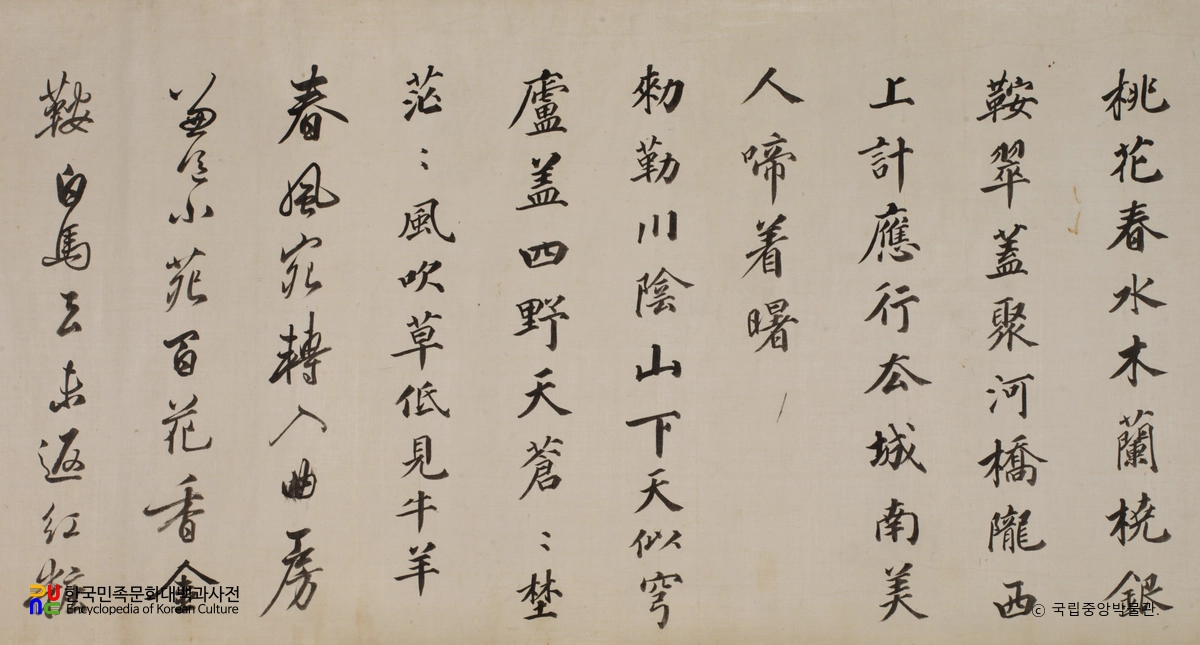 桃花春水木蘭橈銀
鞍翠蓋聚河橋隴西
上計應行厺城南美
人啼着曙
勑勒川陰山下天似穹
廬盖四野天蒼〻埜
茫〻風吹草低見牛羊
春風宛轉入曲房
兼送小苑百花香金
鞍白馬去未返紅粧
한국민족문화대백과사전
Encyclopedia of Korean Culture
© 국립중앙박물관.